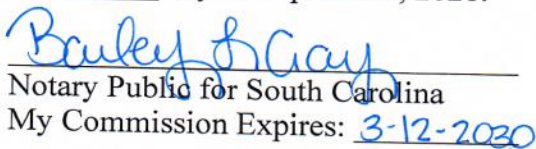 Bailey L Gay
Notary Public for South Carolina
My Commission Expires: 3-12-2030